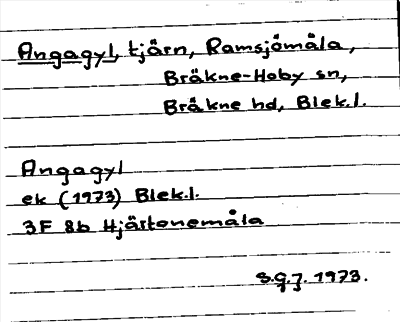 Angagyl, tjärn, Ramsjömåla,
Bräkne-Hoby sn,
Bräkne hd, Blek.l.
Angagyl
ek (1973) Blek.l.
3F 8b Hjärtanemåla
S.G.J. 1973.